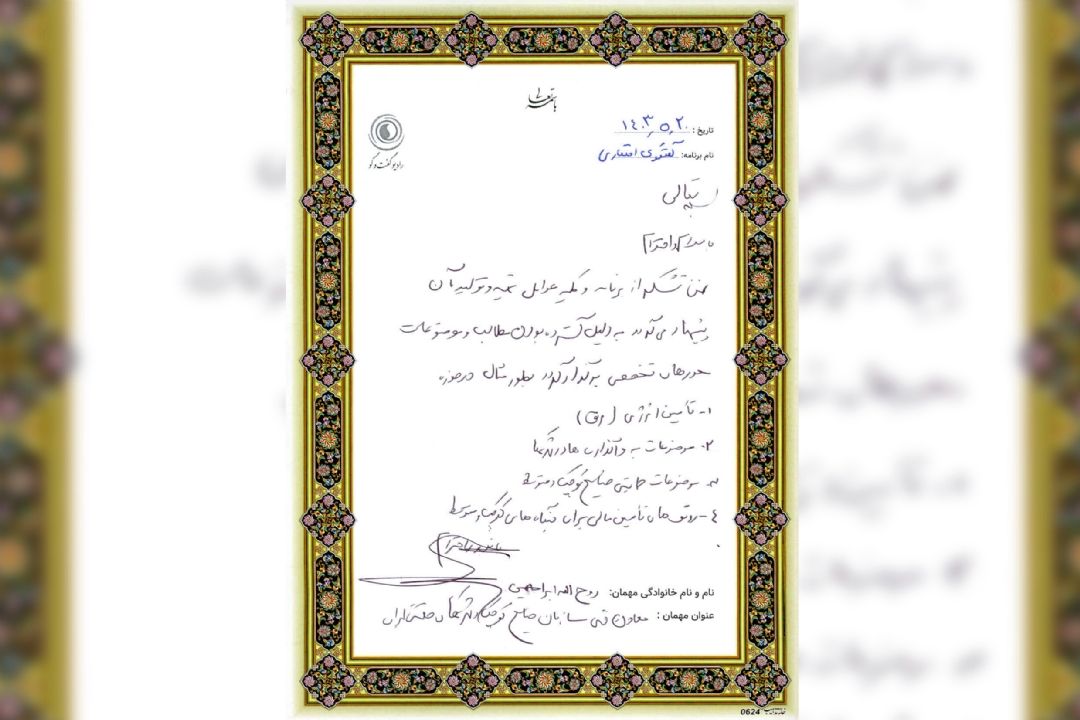 باسمه تعالی
رادیو گفت‌وگو
تاریخ: ۱۴۰۳٫۵٫۲۰
نام برنامه: گفتگوی اقتصادی
بسمه تعالی
با سلام و احترام
ضمن تشکر از برنامه و کلیه عوامل تهیه و تولید آن
پیشنهاد می‌گردد به دلیل گسترده بودن مطالب و موضوعات
میزگردهای تخصصی برگزار گردد بطور مثال در حوزه
۱- تأمین انرژی (برق)
۲- موضوعات واگذاری ها در شهرکها
۳- موضوعات حمایتی صنایع کوچک و متوسط
۴- روشهای تأمین مالی برای بنگاه های کوچک و متوسط
با تشکر و احترام
نام و نام خانوادگی مهمان: روح اله ابراهیمی
عنوان مهمان: معاون فنی سازمان صنایع کوچک و شهرکهای صنعتی ایران
0624